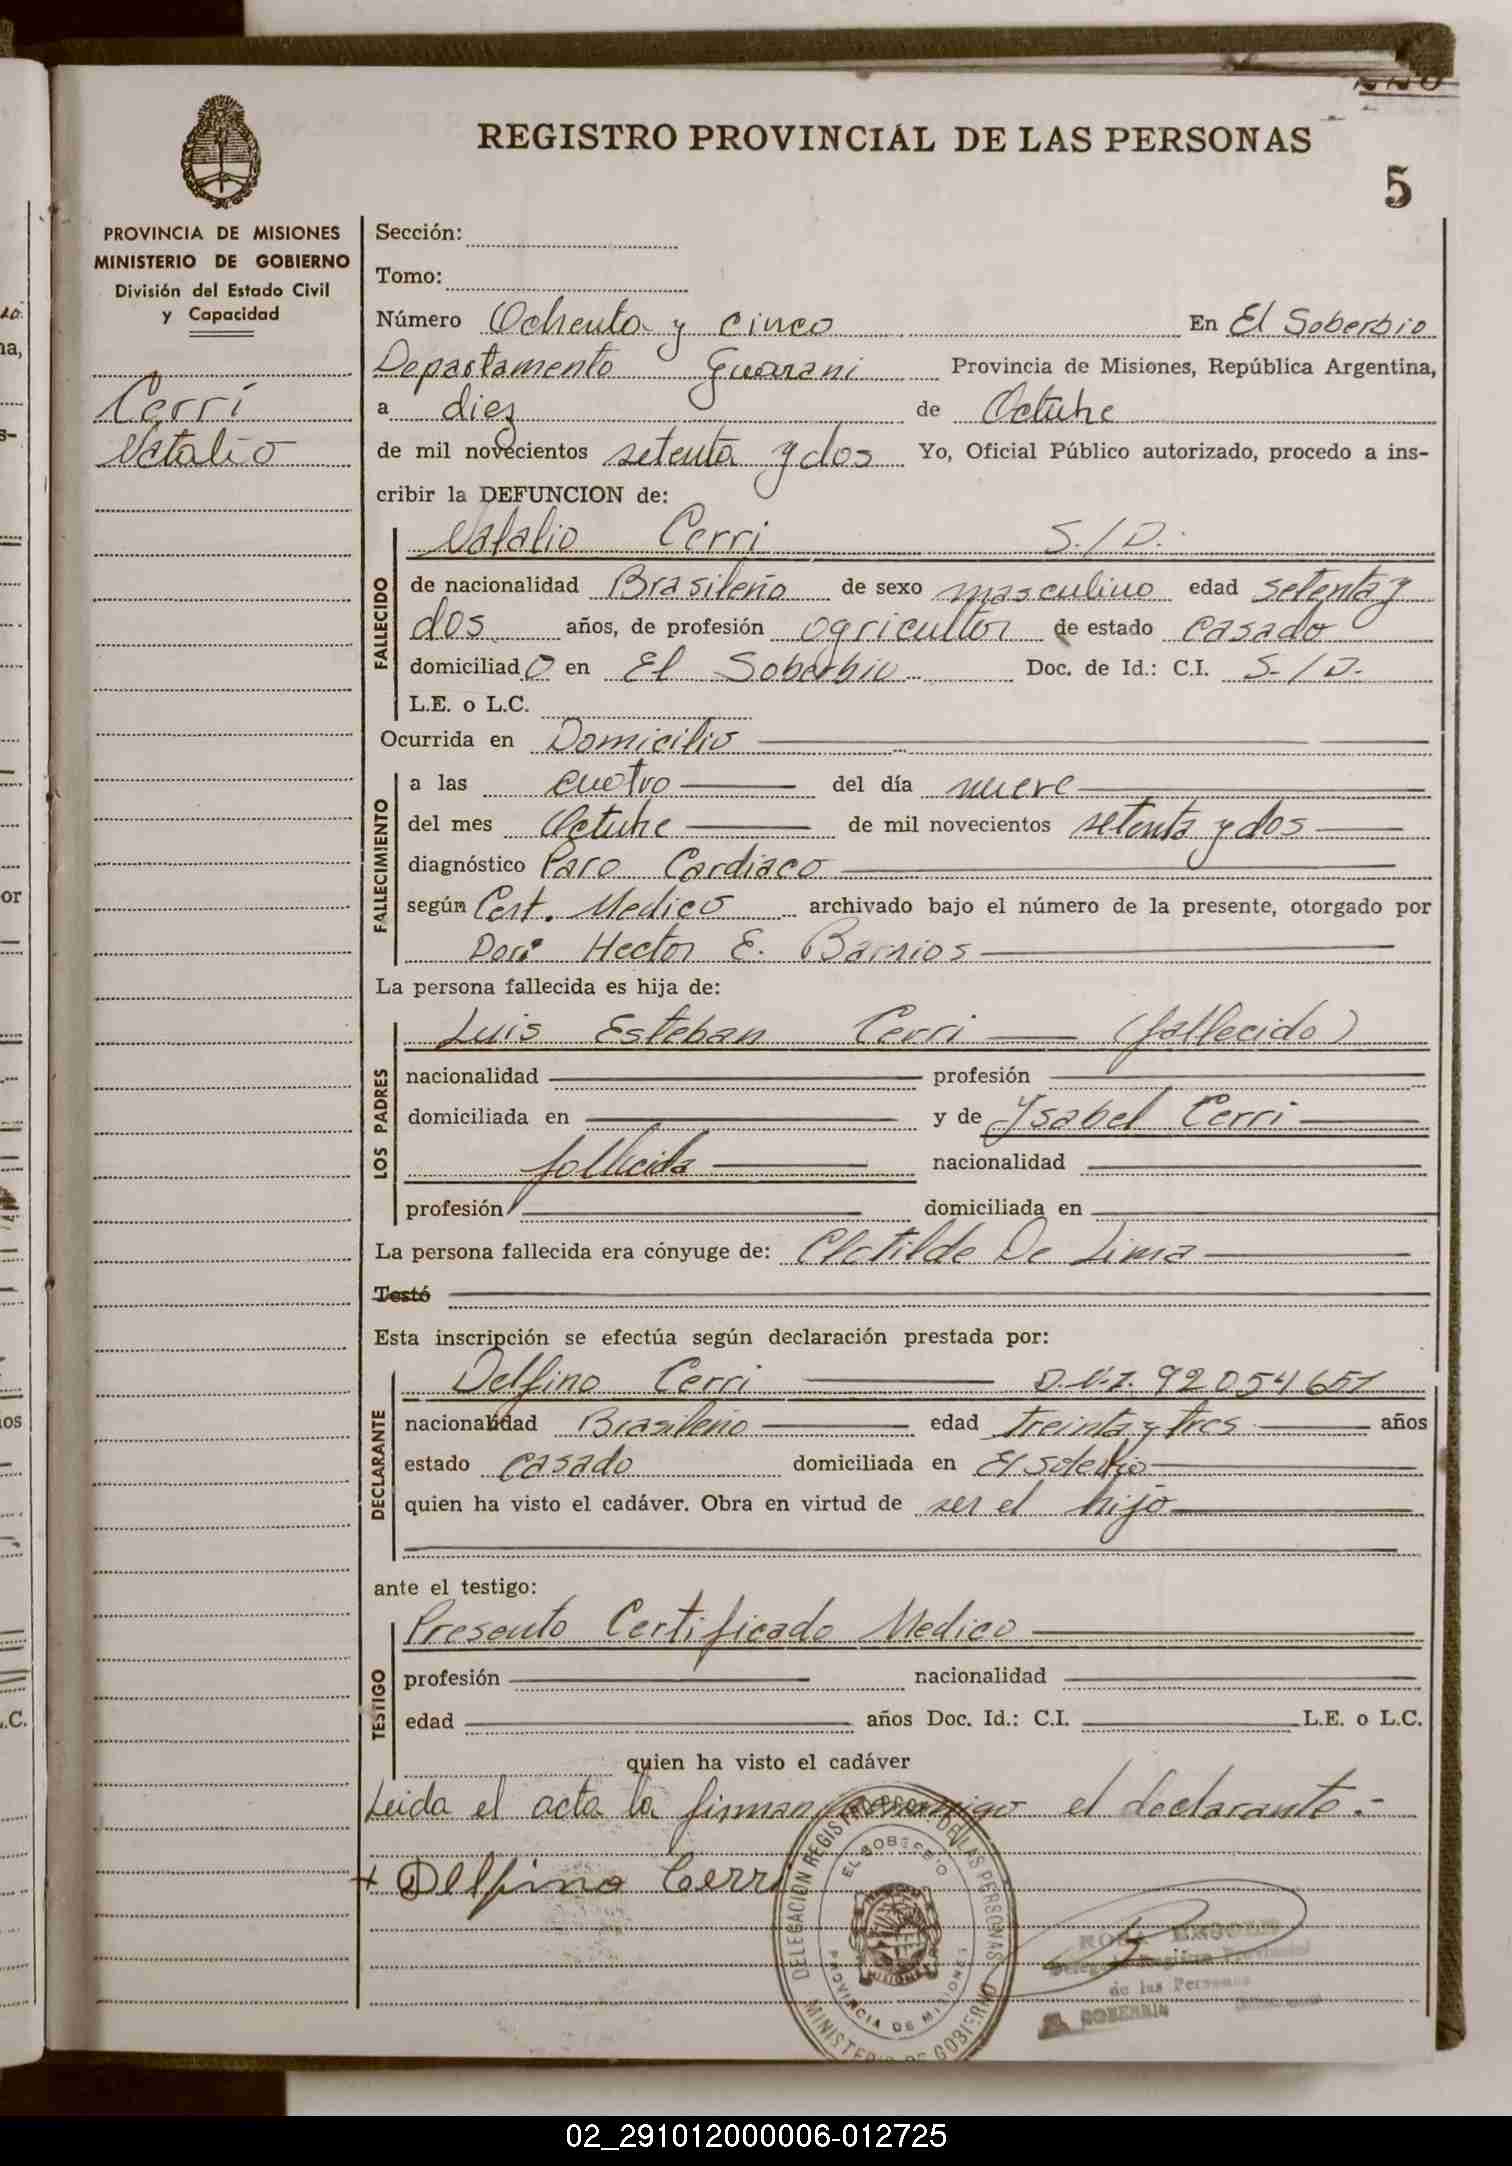 REGISTRO PROVINCIAL DE LAS PERSONAS
5
PROVINCIA DE MISIONES
MINISTERIO DE GOBIERNO
División del Estado Civil
y Capacidad
Cerri
Natalio
Sección:
Tomo:
Número Ochenta y cinco En El Soberbio
Departamento Guarani Provincia de Misiones, República Argentina,
a diez de Octubre
de mil novecientos setenta y dos Yo, Oficial Público autorizado, procedo a ins-
cribir la DEFUNCION de:
Natalio Cerri S./D.
FALLECIDO
de nacionalidad Brasileño de sexo masculino edad setenta y
dos años, de profesión agricultor de estado casado
domiciliado en El Soberbio Doc. de Id.: C.I. S./D.
L.E. o L.C.
Ocurrida en Domicilio
FALLECIMIENTO
a las cuatro del día nueve
del mes Octubre de mil novecientos setenta y dos
diagnóstico Paro Cardiaco
según Cert. Medico archivado bajo el número de la presente, otorgado por
Hector E. Barrios
La persona fallecida es hija de:
LOS PADRES
Luis Esteban Cerri (fallecido)
nacionalidad profesión
domiciliada en y de Ysabel Cerri
fallecida nacionalidad
profesión domiciliada en
La persona fallecida era cónyuge de: Clotilde De Lima
Testó
Esta inscripción se efectúa según declaración prestada por:
DECLARANTE
Delfino Cerri D.N.I. 92054651
nacionalidad Brasileño edad treinta y tres años
estado casado domiciliada en El Soberbio
quien ha visto el cadáver. Obra en virtud de ser el hijo
ante el testigo:
TESTIGO
Presento Certificado Medico
profesión nacionalidad
edad años Doc. Id.: C.I. L.E. o L.C.
quien ha visto el cadáver
Leida el acta la firman conmigo el declarante.-
+ Delfino Cerri
DELEGACION REGISTRO PROV. DE LAS PERSONAS
EL SOBERBIO
MISIONES
PROVINCIA DE MISIONES
MINISTERIO DE GOBIERNO
Registro Provincial
de las Personas
SOBERBIO
02_291012000006-012725